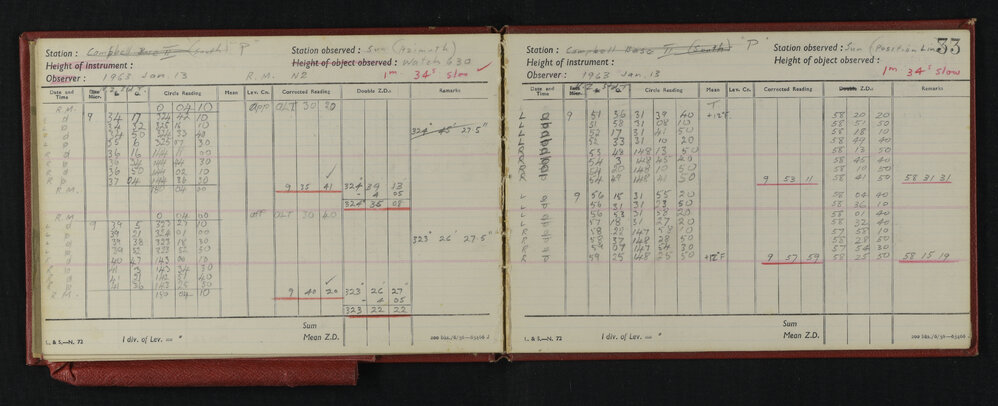 Station : Campbell Base II (South) "P" Station observed : Sun (Azimuth)
Height of instrument : Height of object observed : Watch 630
Observer : 1963 Jan. 13 R. M. N2 1m 34s slow
Date and Time Circle Reading Mean Lev. Cr. Corrected Reading Double Z.D.: Remarks
R.M. 0 04 10 app ALT 30 20
9 34 17 324 42 10
324° 45' 27.5"
36 16 144 11 00
36 50 144 02 10
37 04 144 36 30
R.M. 180 04 00 9 35 41 324 39 13
- 4 05
324 35 08
R.M 0 04 00 ALT 30 40
9 39 5 323 27 10
39 21 324 01 00
39 38 323 18 30 323° 26' 27.5"
39 52 323 52 50
40 47 143 00 10
41 3 143 34 30
41 36 143 25 50
R.M. 180 04 10 9 40 20 323 26 27
- 4 05
323 22 22
Sum
L. & S.—N. 72 1 div. of Lev. = " Mean Z.D.
33
Station : Campbell Base II (South) "P" Station observed : Sun (Position Line)
Height of instrument : Height of object observed :
Observer : 1963 Jan. 13 1m 34s slow
Date and Time Circle Reading Mean Lev. Cr. Corrected Reading Double Z.D.: Remarks
T
L 9 51 36 31 39 40 +12°F 58 20 20
L 51 58 31 08 10 58 51 50
L 52 17 31 41 50 58 18 10
L 52 33 31 10 20 58 49 40
R 53 48 148 13 50 58 13 50
R 54 3 148 45 40 58 45 40
R 54 20 148 10 50 58 10 50
R 54 49 148 41 50 9 53 11 58 41 50 58 31 31
L 9 56 15 31 55 20 58 04 40
L 56 31 31 23 50 58 36 10
L 56 53 31 58 20 58 01 40
L 57 18 31 27 20 58 32 40
R 58 28 147 58 10 57 58 10
R 58 37 148 28 50 58 28 50
R 59 07 147 54 30 57 54 30
R 59 25 148 25 50 +12°F 9 57 59 58 25 50 58 15 19
Sum
L. & S.—N. 72 1 div. of Lev. = " Mean Z.D.